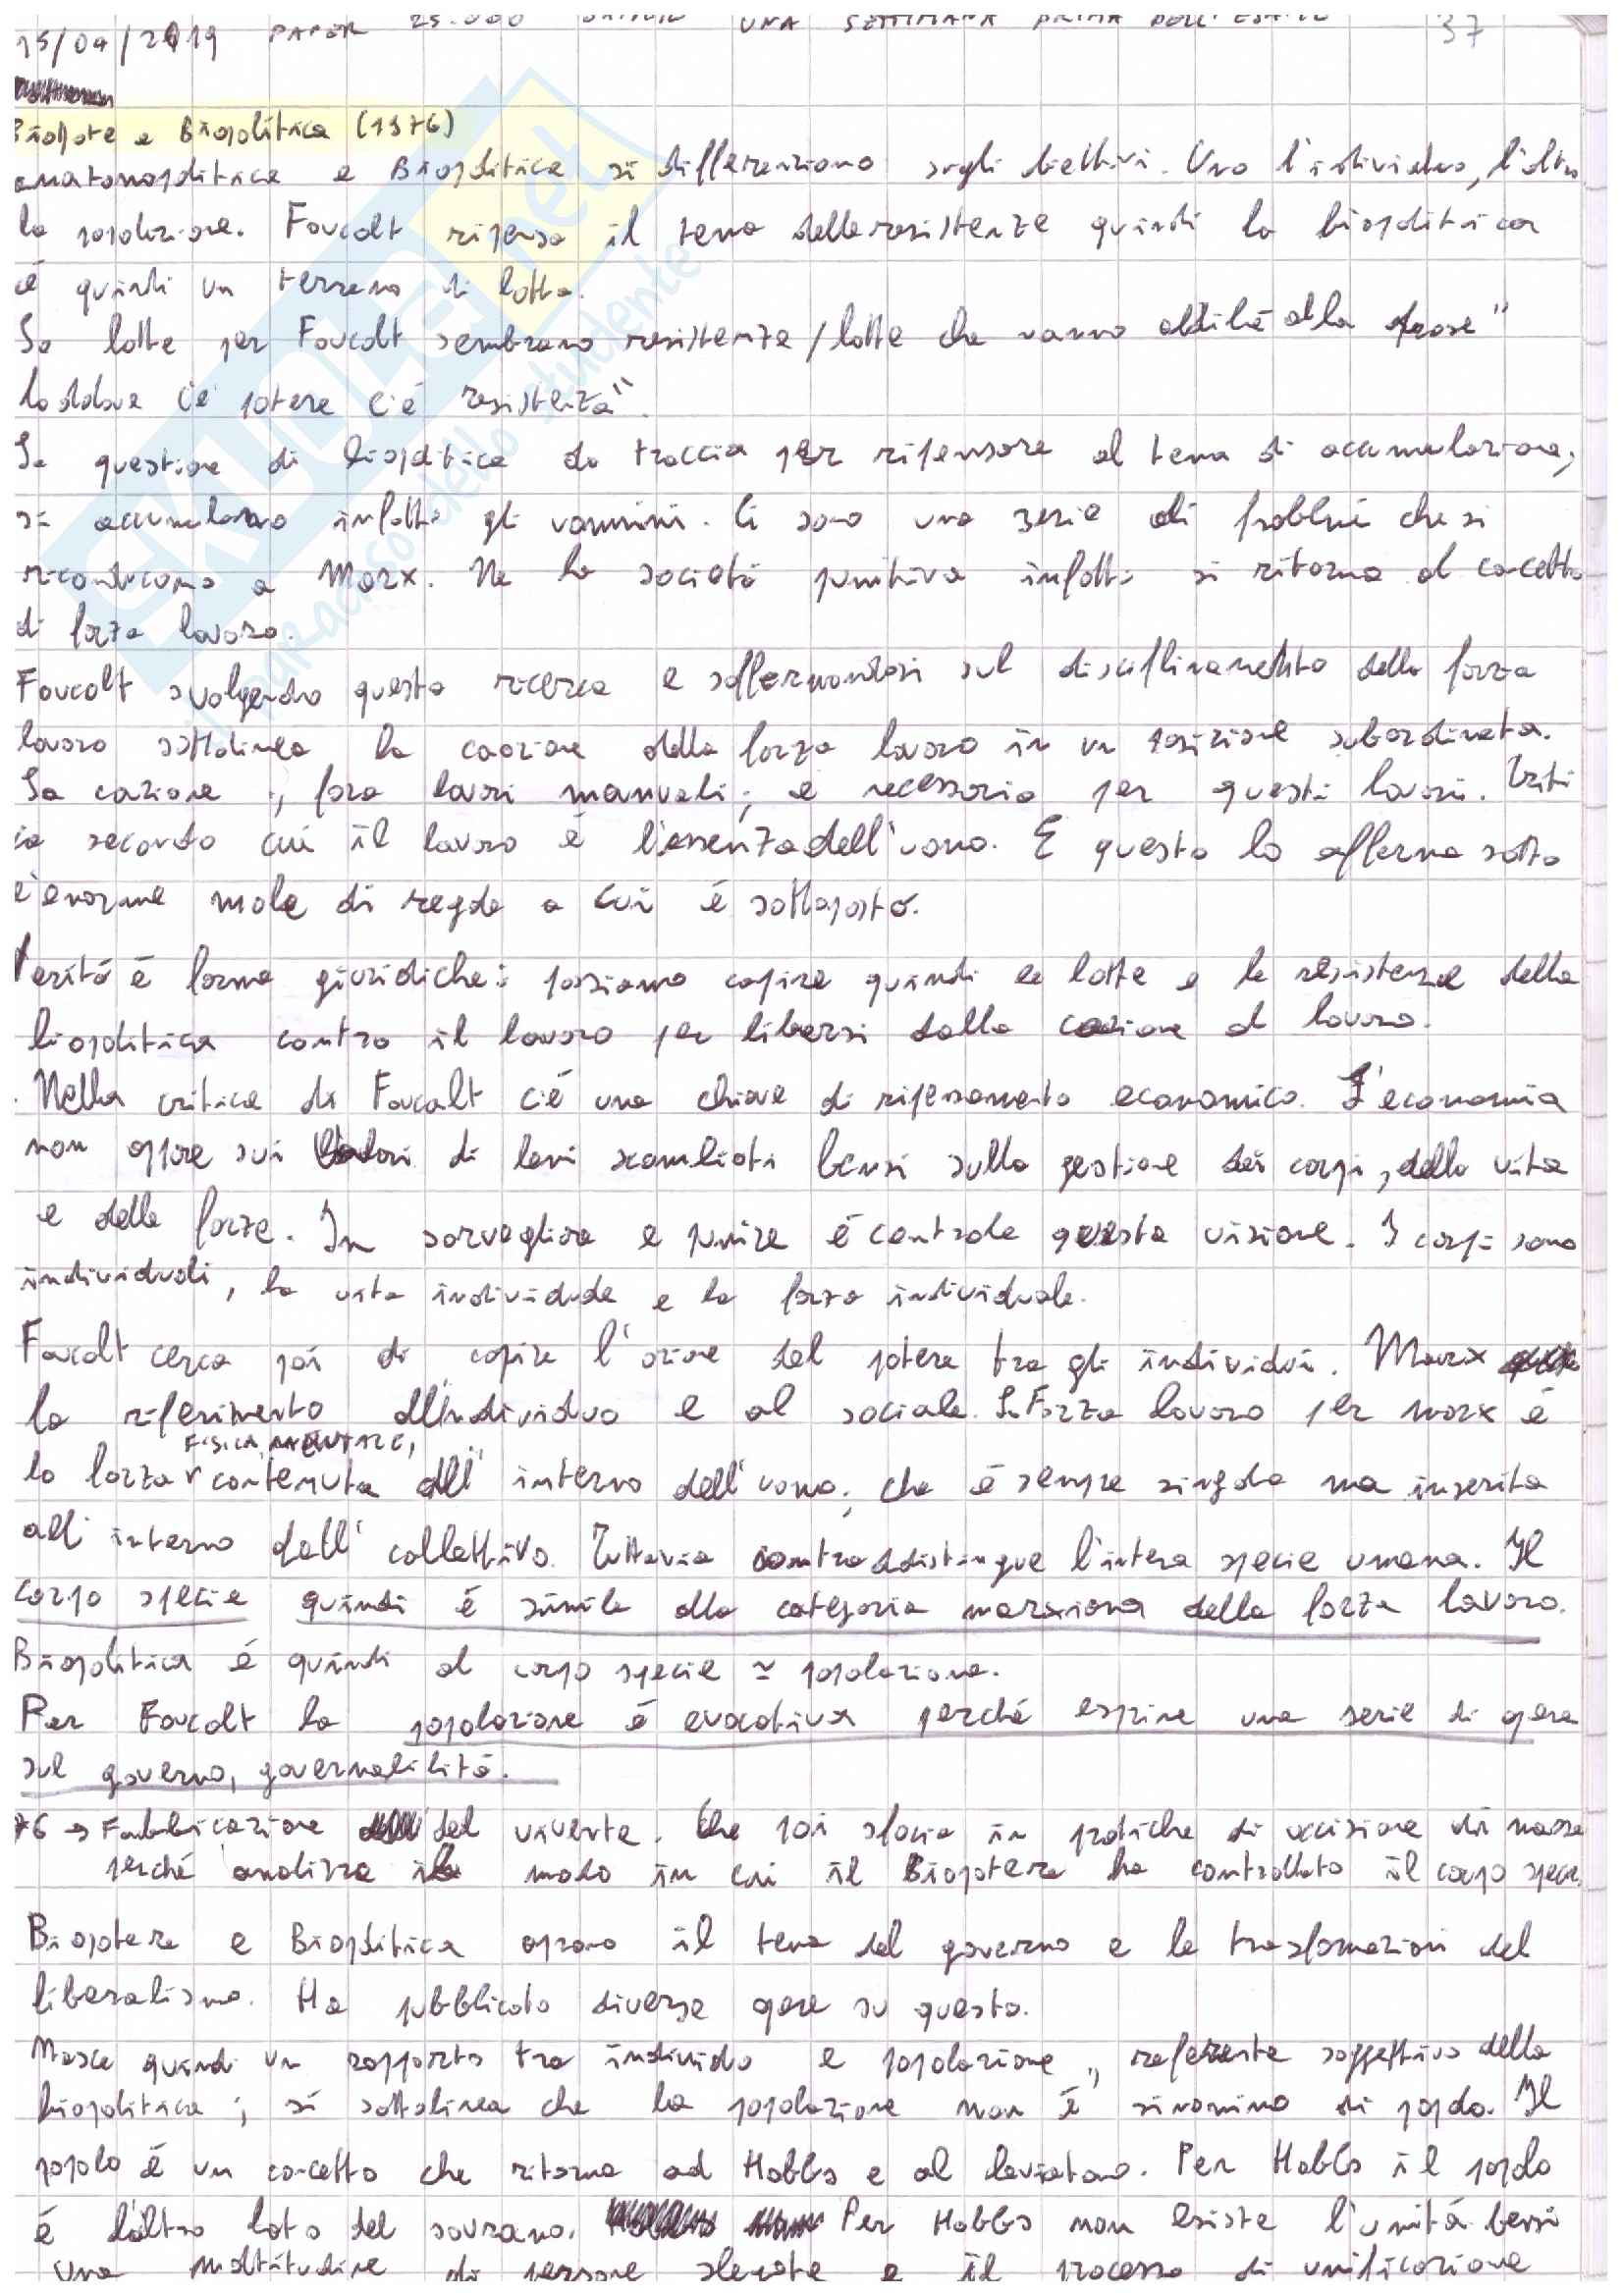 15/04/2019 PAPER 25.000 UNA SETTIMANA PRIMA DELL'ESAME 37
Biopote e Biopolitica (1976)
anatomopolitica e Biopolitica si differenziano sugli biettivi. Uno l'individuo, l'altro
la popolazione. Foucolt ripensa il tema delle resistenze quindi la biopolitica
é quindi un terreno di lotta.
Le lotte per Foucolt sembrano resistenze/lotte che vanno aldilá alla frase "
laddove c'é potere c'é resistenza".
La questione di biopolitica da traccia per ripensare al tema di accumulazione,
si accumulano infatti gli uomini. Ci sono una serie di problemi che si
riconducono a Marx. Ne la societá punitiva infatti si ritorna al concetto
di forza lavoro.
Foucolt svolgendo questa ricerca e soffermandosi sul disciplinamento della forza
lavoro sottolinea la coazione della forza lavoro in un posizione subordinata.
La coazione, fora lavori manuali; e necessaria per questi lavori. Criti
ca secondo cui il lavoro é l'essenza dell'uomo. E questo lo afferma sotto
l'enorme mole di regole a cui é sottoposto.
Veritá é forme giuridiche: possiamo capire quindi le lotte e le resistenze della
biopolitica contro il lavoro per liberarsi dalla coazione al lavoro.
. Nella critica di Foucalt c'é una chiave di ripensamento economico. L'economia
non opire sui valori di beni scambiati bensi sulla gestione dei corpi, della vita
e delle forze. In sorvegliare e punire é centrale questa visione. I corpi sono
individuali, la vita individuale e la forza individuale.
Foucolt cerca poi di capire l'azione del potere tra gli individui. Marx
fa riferimento all'individuo e al sociale. La Forza lavoro per marx é
FISICA, MENTALE,
la forza contenuta all'interno dell'uomo, che é sempre singola ma inserita
all'interno dell'collettivo. Tuttavia contraddistingue l'intera specie umana. Il
corpo specie quindi é simile alla categoria marxiana della forza lavoro.
Biopolitica é quindi al corpo specie ≃ popolazione.
Per Foucolt la popolazione é evocativa perché esprime una serie di opere
sul governo, governabilitá.
76 → Fabbricazione del vivente. Che poi sfocia in pratiche di uccisione di massa
perché analizza il modo in cui il Biopotere ha controllato il corpo specie.
Biopotere e Biopolitica aprono il tema del governo e le trasformazioni del
liberalismo. Ha pubblicato diverse opere su questo.
Nasce quindi un rapporto tra individuo e popolazione, referente soggettivo della
biopolitica; si sottolinea che la popolazione non é sinonimo di popolo. Il
popolo é un concetto che ritorna ad Hobbs e al leviatano. Per Hobbs il popolo
é l'altro lato del sovrano. Per Hobbs non esiste l'unitá bensi
una moltitudine di persone slegate e il processo di unificazione
SKUOLA.net
il paradiso dello studente